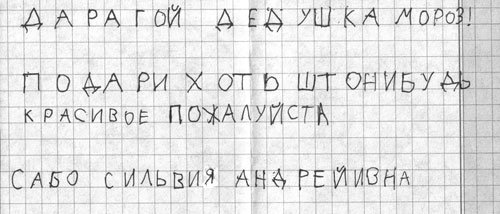 ДАРАГОЙ ДЕДУШКА МОРОЗ!
ПОДАРИ ХОТЬ ШТОНИБУДЬ
КРАСИВОЕ ПОЖАЛУЙСТА
САБО СИЛЬВИЯ АНДРЕЙИВНА